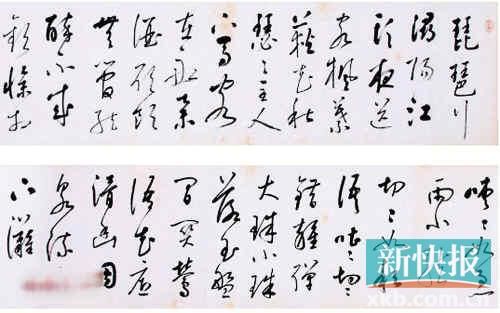 琵琶行
潯陽江
頭夜送
客楓葉
荻花秋
瑟〻主人
下馬客
在船舉
酒欲飲
無管弦
醉不成
歡慘將
嘈〻如急
雨小弦
切〻如私
語嘈〻切〻
錯雜彈
大珠小珠
落玉盤
間關鶯
語花底
滑幽
泉流
下灘
新快报
xkb.com.cn